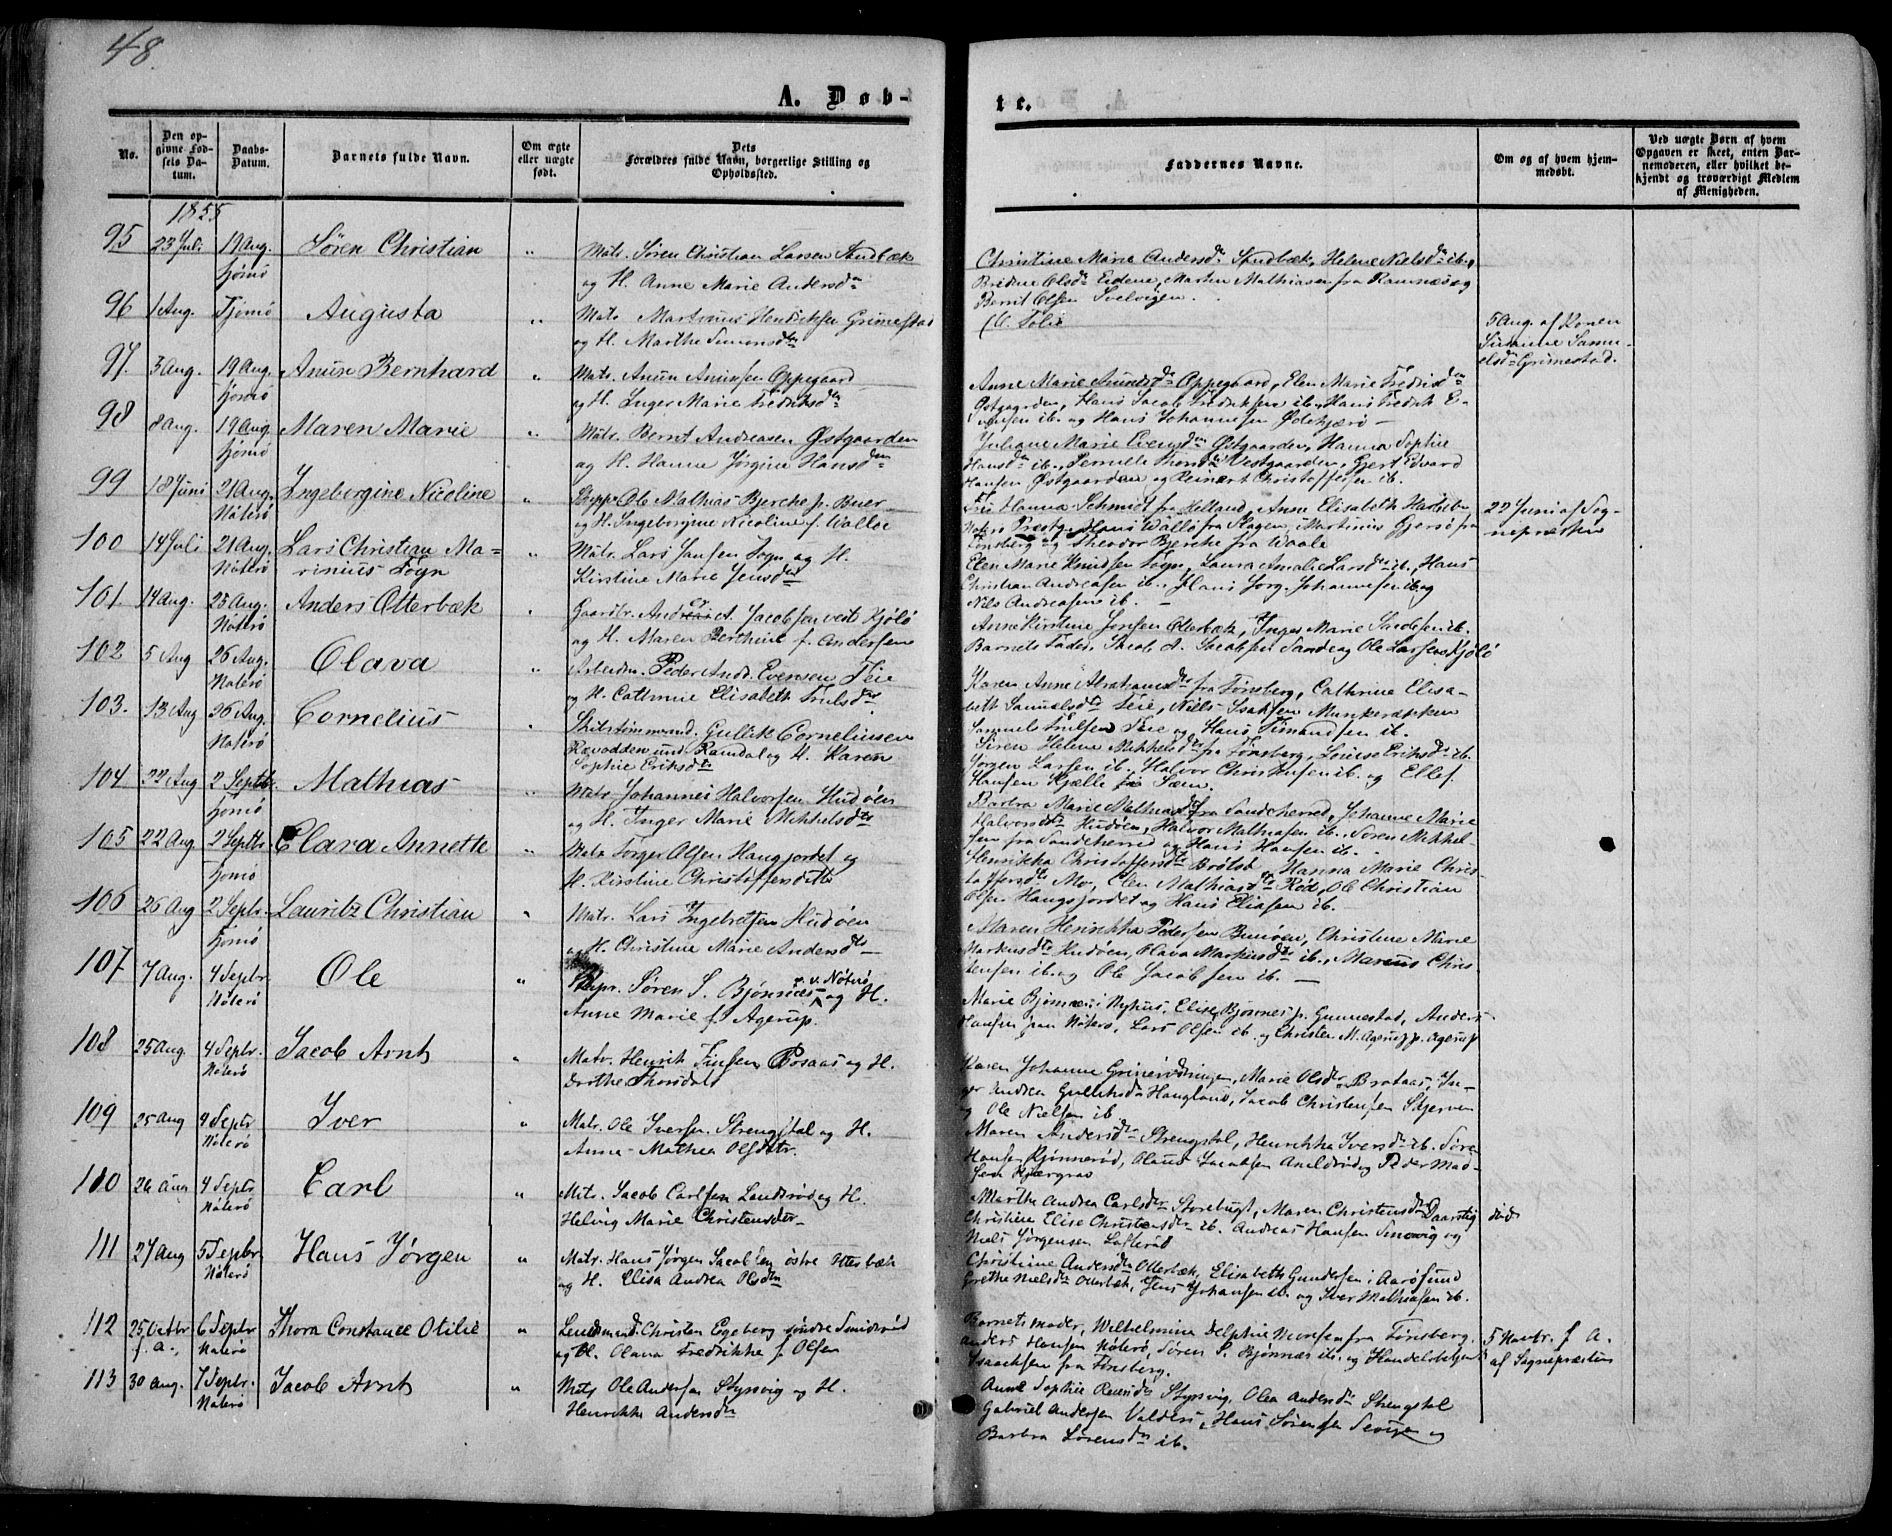 48.
A. Døb-
te.
No.
Den op-
givne Fød-
sels Da-
tum.
Daabs-
Datum.
Barnets fulde Navn.
Om ægte
eller uægte
født.
Dets
Forældres fulde Navn, borgerlige Stilling og
Opholdssted.
Faddernes Navne.
Om og af hvem hjem-
medøbt.
Ved uægte Børn af hvem
Opgaven er skeet, enten Bar-
nemoderen, eller hvilket be-
kjendt og troværdigt Medlem
af Menigheden.
1855
95 23 Juli 19 Aug. Tjømø Søren Christian "
Matr. Søren Christian Larsen Sandbæk
og H. Anne Marie Andersdn
Christine Marie Andersdn Sandbæk, Helene Nielsdn ib.,
Bredine Olsdn Eidene, Martin Mathiasen fra Ramnæs og
Bernt Olsen Svelvigen.
96 1 Aug. Tjømø Augusta "
Matr. Martinius Hendriksen Grimestad
og H. Marthe Simonsdn
5 Aug. af Konen
Sirianne Samu-
elsdn Grimestad.
97. 3 Aug. 19 Aug. Tjømø Anun Bernhard "
Matr. Anun Anunsen Oppegaard
og H. Inger Marie Fredriksdn
Anne Marie Anunsdn Oppegaard, Elen Marie Fredriksdn
Østgaarden, Hans Jacob Fredriksen ib., Hans Fredrik E-
vensen ib. og Hans Johannesen Ødekjærø —
98 8 Aug. 19 Aug. Tjømø Maren Marie "
Matr. Bernt Andreasen Østgaarden
og H. Hanne Jørgine Hansdn
Juliane Marie Evensdn Østgaarden, Hanna Sophie
Hansdn ib., Pernille Thorsdn Vestgaarden, Gjert Edvard
Hansen Østgaarden og Reinert Christoffersen ib.
99 18 Juni 21 Aug. Nøterø Ingeborgine Nicoline "
Skippr Ole Mathias Bjerche p. Buer
og H. Ingeborgine Nicoline f. Walløe
Hanna Schmidt fra Helland, Anne Elisabeth
Nøterø Prestg., Hans Walløe fra Slagen, Martinius Gjersø fra
Tønsberg og Theodor Bjerche fra Waale
22 Juni af Sog-
nepræsten
100 14 Juli 21 Aug. Nøterø Lars Christian Ma-
rinius Togn "
Matr. Lars Jansen Togn og H.
Kirstine Marie Jensdn
Elen Marie Knudsen Togn, Laura Amalie Larsdn ib., Hans
Christian Andreasen ib., Hans Jørg. Johannesen ib. og
Nils Andreasen ib. —
101. 14 Aug. 23 Aug. Nøterø Anders Otterbæk "
Gaardbr. And. A. Jacobsen vestr Kjølø
og H. Maren Berthine f. Andersen
Anne Kirstine Jensen Otterbæk, Inger Marie Jacobsen ib.
Barnets Fader, Jacob A. Jacobsen Sande og Ole Larsen Kjølø
102 5 Aug 26 Aug. Nøterø Olava "
Arbeidsm. Peder Andr. Evensen Teie
og H. Cathrine Elisabeth Trulsdn
Karen Anne Abrahamsdn fra Tønsberg, Cathrine Elisa-
beth Samuelsdn Teie, Niels Isaksen Munkerækken
Samuel Trulsen Teie og Hans Simonsen ib.
103. 13 Aug 26 Aug. Nøterø Cornelius "
Skibstømmermd. Gullik Corneliusen
Rævodden und. Ramdal og H. Karen
Sophie Eriksdtr
Siren Helene Mikkelsdtr fra Tønsberg, Louise Eriksdtr ib.
Jørgen Larsen ib., Halvor Christensen ib. og Ellef
Hansen Kjælle fra Sæm.
104 22 Aug 2 Septbr. Tjømø Mathias "
Matr Johannes Halvorsen Hudøen
og H. Inger Marie Mikkelsdtr
Barbra Marie Mathiasdtr fra Sandeherred, Johanne Marie
Halvorsdtr Hudøen, Halvor Mathiasen ib. Søren Mikkel-
sen fra Sandeherred og Hans Hansen ib.
105 22 Aug 2 Septbr. Tjømø Clara Annette "
Matr Torger Olsen Haugjordet og
H. Kirstine Christoffersdatter
Henrikka Christoffersdtr Brøtsø, Hanna Marie Chris-
toffersdtr Mo, Elen Mathiasdtr Rød, Ole Christian
Olsen Haugsjordet og Hans Eliasen ib.
106 26 Aug 2 Septbr. Tjømø Lauritz Christian "
Matr. Lars Ingebretsen Hudøen
og H. Christine Marie Andersdtr
Maren Henrikka Pedersen Buerøen, Christine Marie
Markusdtr Hudøen, Olava Markusdtr ib., Marcus Chris-
tensen ib. og Ole Jacobsen ib. —
107 7 Aug. 4 Septbr Nøterø Ole "
Skippr. Søren S. Bjønnæs v. Nøterø og H.
Anne Marie f. Agerup.
Marie Bjønnæs i Nyhus, Elise Bjønnes p. Gunnestad, Anders
Hansen paa Nøterø, Lars Olsen ib. og Christen M. Agerup p. Agerup
108 25 Aug 4 Septbr. Nøterø Jacob Arnt "
Matr. Henrik Finsen Rosaas og H.
Dorthe Thorsdtr
Karen Johanne Grinerødningen, Marie Olsdtr Brataas, In-
ger Andrea Gulliksdn Haugland, Jacob Christensen Skjerven
og Ole Nielsen ib.
109 25 Aug 4 Septbr Nøterø Iver "
Matr. Ole Iversen Strengsdal og H.
Anne Mathea Olsdttr.
Maren Andersdn Strengsdal, Henrikke Iversdn ib. Søren
Hansen Rønnerød, Olaus Jacobsen Aneldrød og Peder Mad-
sen Kjærgrav
110 26 Aug 4 Septbr Nøterø Carl "
Matr. Jacob Carlsen Landsrød og H.
Helvig Marie Christensdtr
Marthe Andrea Carlsdtr Storebugt, Maren Christensdn Daarstig
Christine Elise Christensdn ib. Andreas Hansen Smidsvig og
Niels Jørgensen Lofterød
død
111 27 Aug 5 Septbr. Nøterø Hans Jørgen "
Matr. Hans Jørgen Jacobsen østre Herbæk
og H. Elisa Andrea Olsdn
Christine Andersdn Otterbæk, Elisabeth Gundersen i Aarøsund
Grethe Nielsdn Otterbæk, Jens Johansen ib. og Iver Mathiasen ib.
112 25 Octbr f. A., 6 Septbr Nøterø Thora Constance Otilie "
Lendsmand Christen Egeberg søndre Smidsrød
og H. Olava Fredrikke f. Olsen
Barnets Moder, Wilhelmine Delphine Monsen fra Tønsberg,
Anders Hansen Nøterø, Søren S. Bjønnæs ib. og Handelsbetjen
Isaachsen fra Tønsberg.
5 Novbr. f. A.
af Sognepræsten
113 30 Aug. 7 Septbr. Nøterø Jacob Arnt "
Matr Ole Andersen Styrsvig og H.
Henrikke Andersdn
Anne Sophie Reiersdn Styrsvig, Olea Andersdn Strengsdal
Gabriel Andersen Valders, Hans Sørensen Sevige og
Barbra Sørensdn ib.